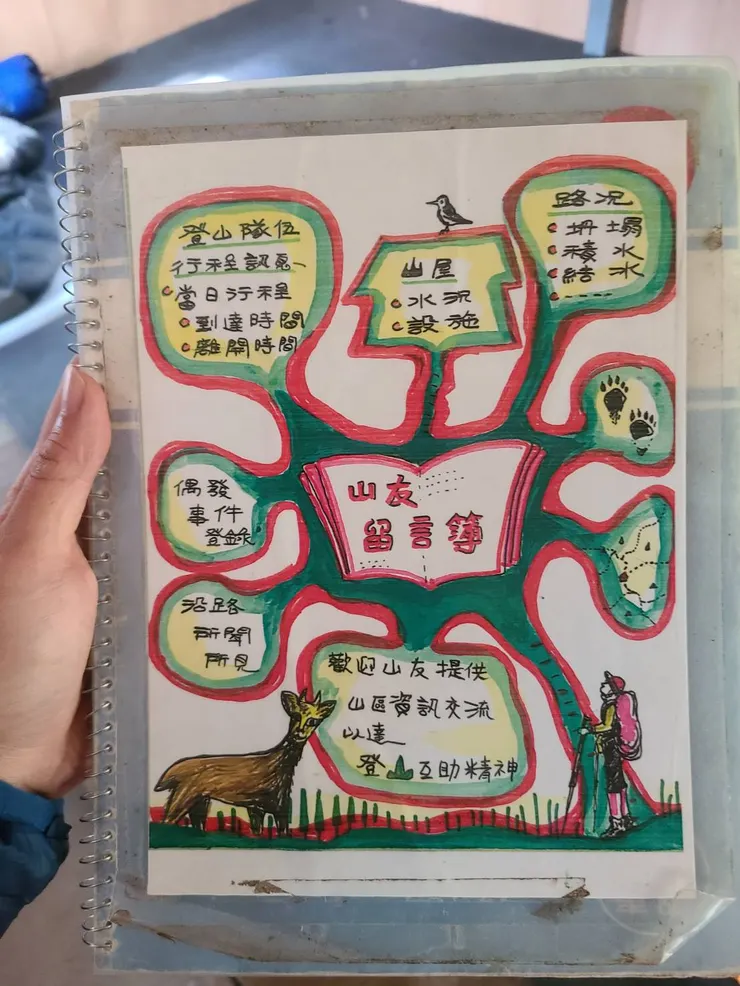 登山隊伍
行程訊息
當日行程
到達時間
離開時間
山屋
水況
設施
路況
坍塌
積水
結冰
偶發
事件
登錄
山友
留言簿
沿路
所聞
所見
歡迎山友提供
山區資訊交流
以達
登山互助精神